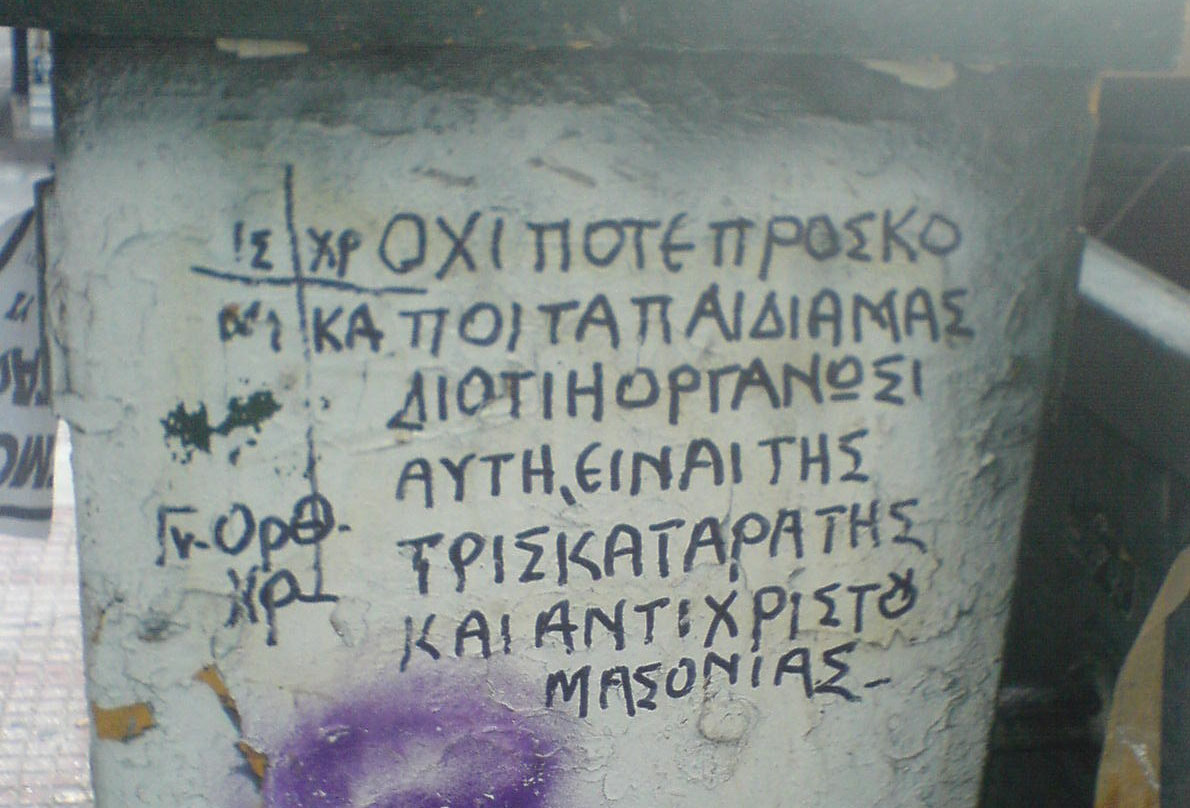 ΙΣ ΧΡ ΟΧΙ ΠΟΤΕ ΠΡΟΣΚΟ
ΚΑ ΠΟΙ ΤΑ ΠΑΙΔΙΑ ΜΑΣ
ΔΙΟΤΙ Η ΟΡΓΑΝΩΣΙ
ΑΥΤΗ, ΕΙΝΑΙ ΤΗΣ
ΤΡΙΣΚΑΤΑΡΑΤΗΣ
ΚΑΙ ΑΝΤΙΧΡΙΣΤȢ
ΜΑΣΟΝΙΑΣ-
Γν. Ορθ.
Χρ